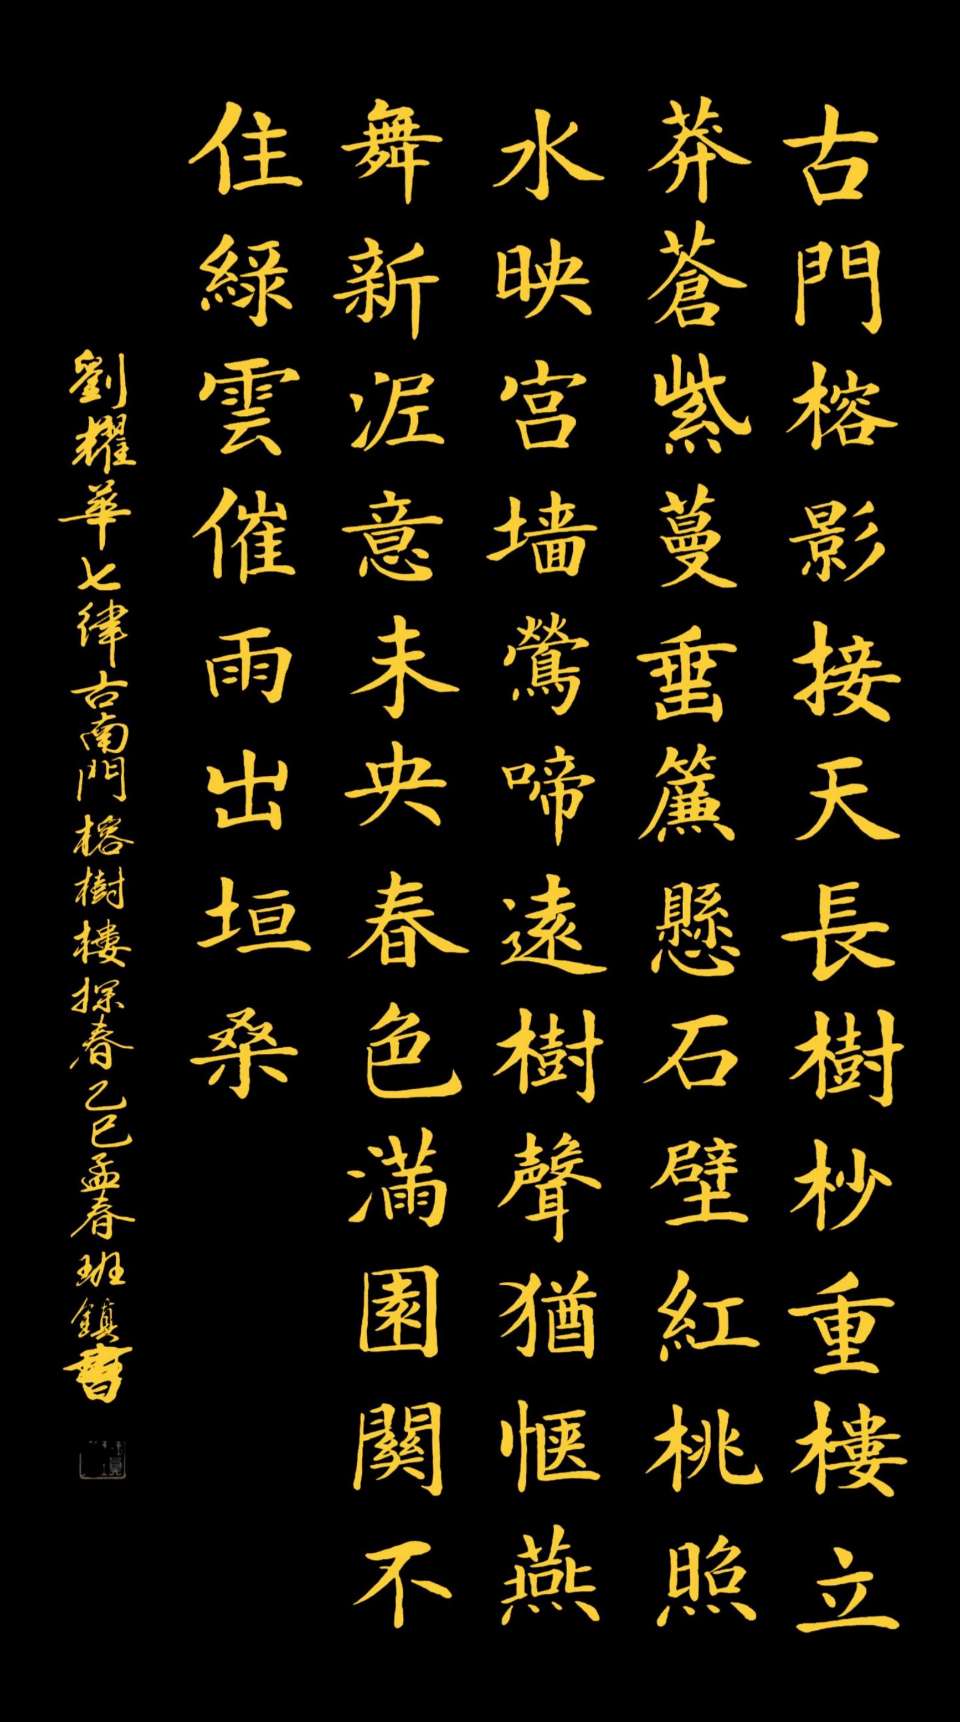 古門榕影接天長樹杪重樓立
莽蒼紫蔓垂簾懸石壁紅桃照
水映宫墙鶯啼遠樹聲猶惬燕
舞新泥意未央春色滿園關不
住綠雲催雨出垣桑
劉耀華七律古南門榕樹樓探春乙巳孟春班鎮書